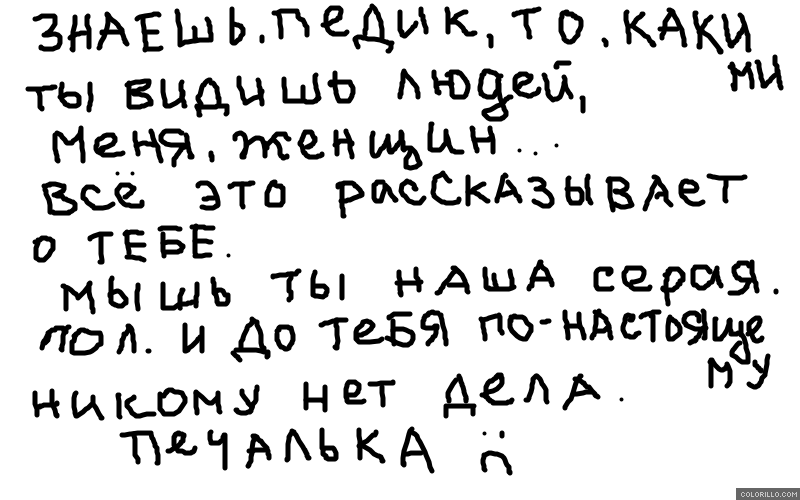 ЗНАЕШЬ. ПЕДИК, ТО, КАКИМИ
ТЫ ВИДИШЬ ЛЮДЕЙ,
МЕНЯ, ЖЕНЩИН...
ВСЁ ЭТО РАССКАЗЫВАЕТ
О ТЕБЕ.
МЫШЬ ТЫ НАША СЕРАЯ.
ПОЛ. И ДО ТЕБЯ ПО-НАСТОЯЩЕМУ
НИКОМУ НЕТ ДЕЛА.
ПЕЧАЛЬКА :(
COLORILLO.COM